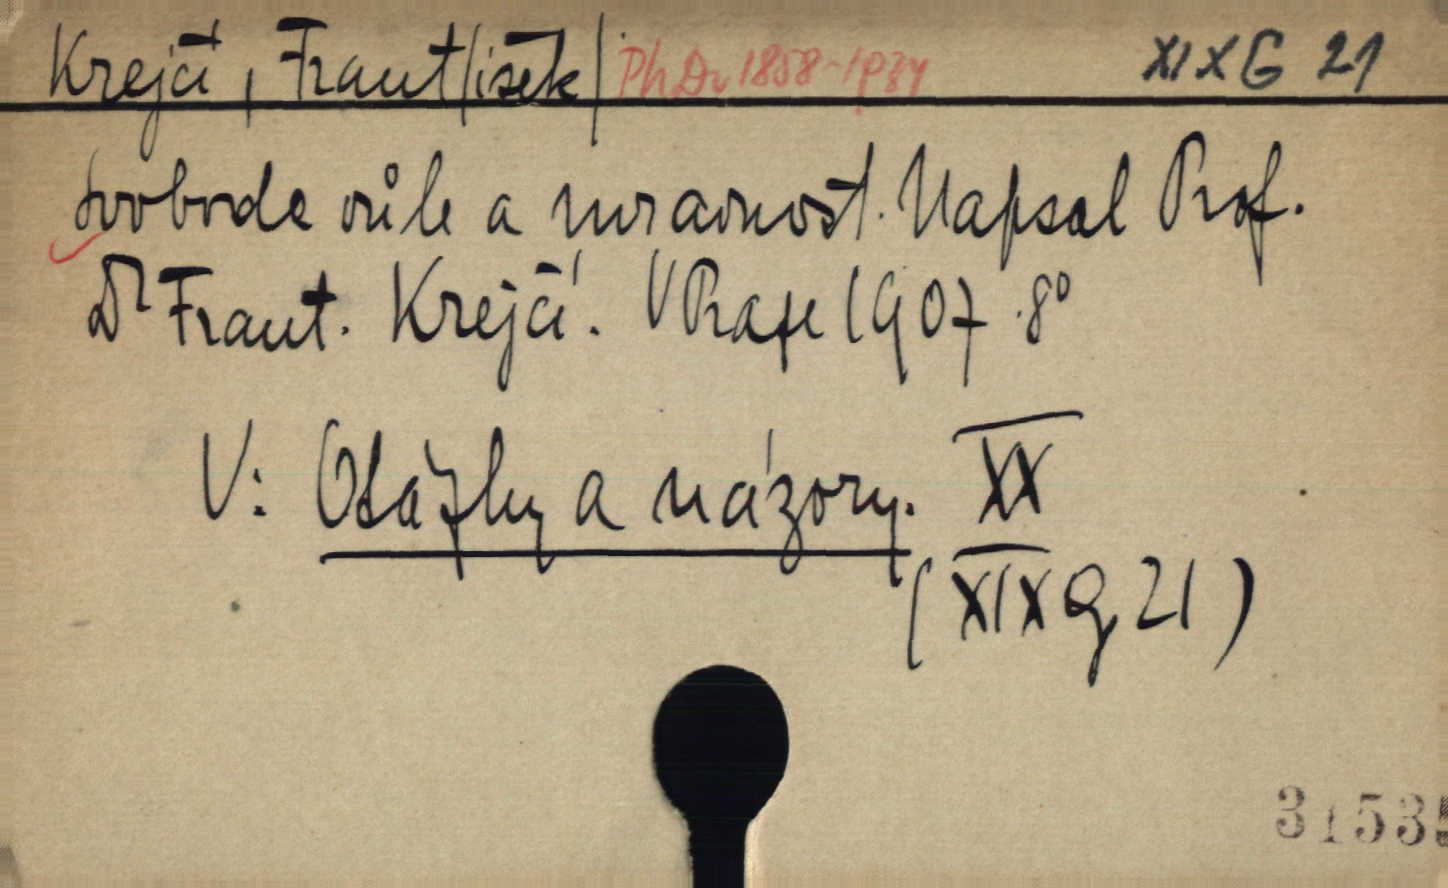 Krejčí, Frant/išek/ PhDr 1858-1934 XIX G 21
Svoboda vůle a mravnost. Napsal Prof.
Dr Frant. Krejčí. V Praze 1907. 8°
V: Otázky a názory. XX
(XIX G 21)
3153